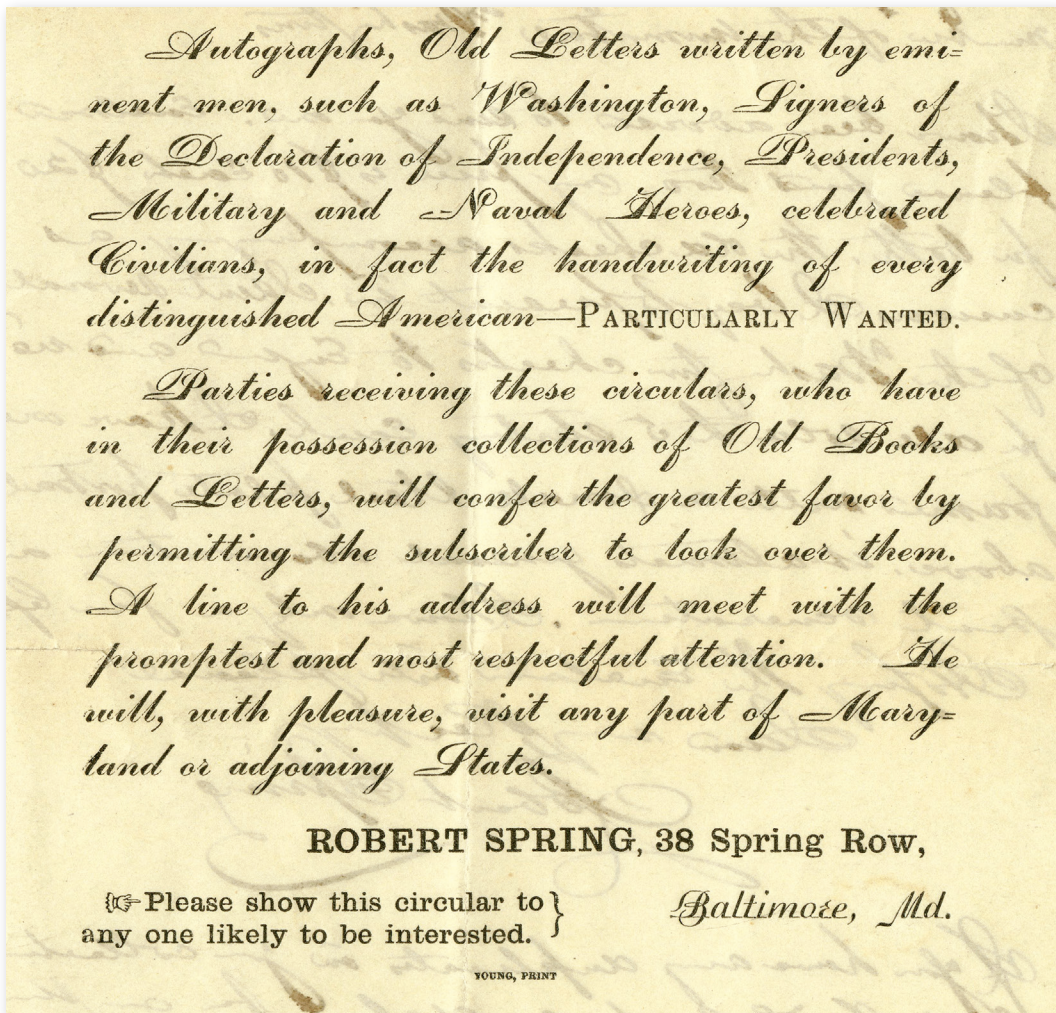 Autographs, Old Letters written by emi-
nent men, such as Washington, Signers of
the Declaration of Independence, Presidents,
Military and Naval Heroes, celebrated
Civilians, in fact the handwriting of every
distinguished American—PARTICULARLY WANTED.
Parties receiving these circulars, who have
in their possession collections of Old Books
and Letters, will confer the greatest favor by
permitting the subscriber to look over them.
A line to his address will meet with the
promptest and most respectful attention. He
will, with pleasure, visit any part of Mary-
land or adjoining States.
ROBERT SPRING, 38 Spring Row,
☞Please show this circular to }
any one likely to be interested.
Baltimore, Md.
YOUNG, PRINT